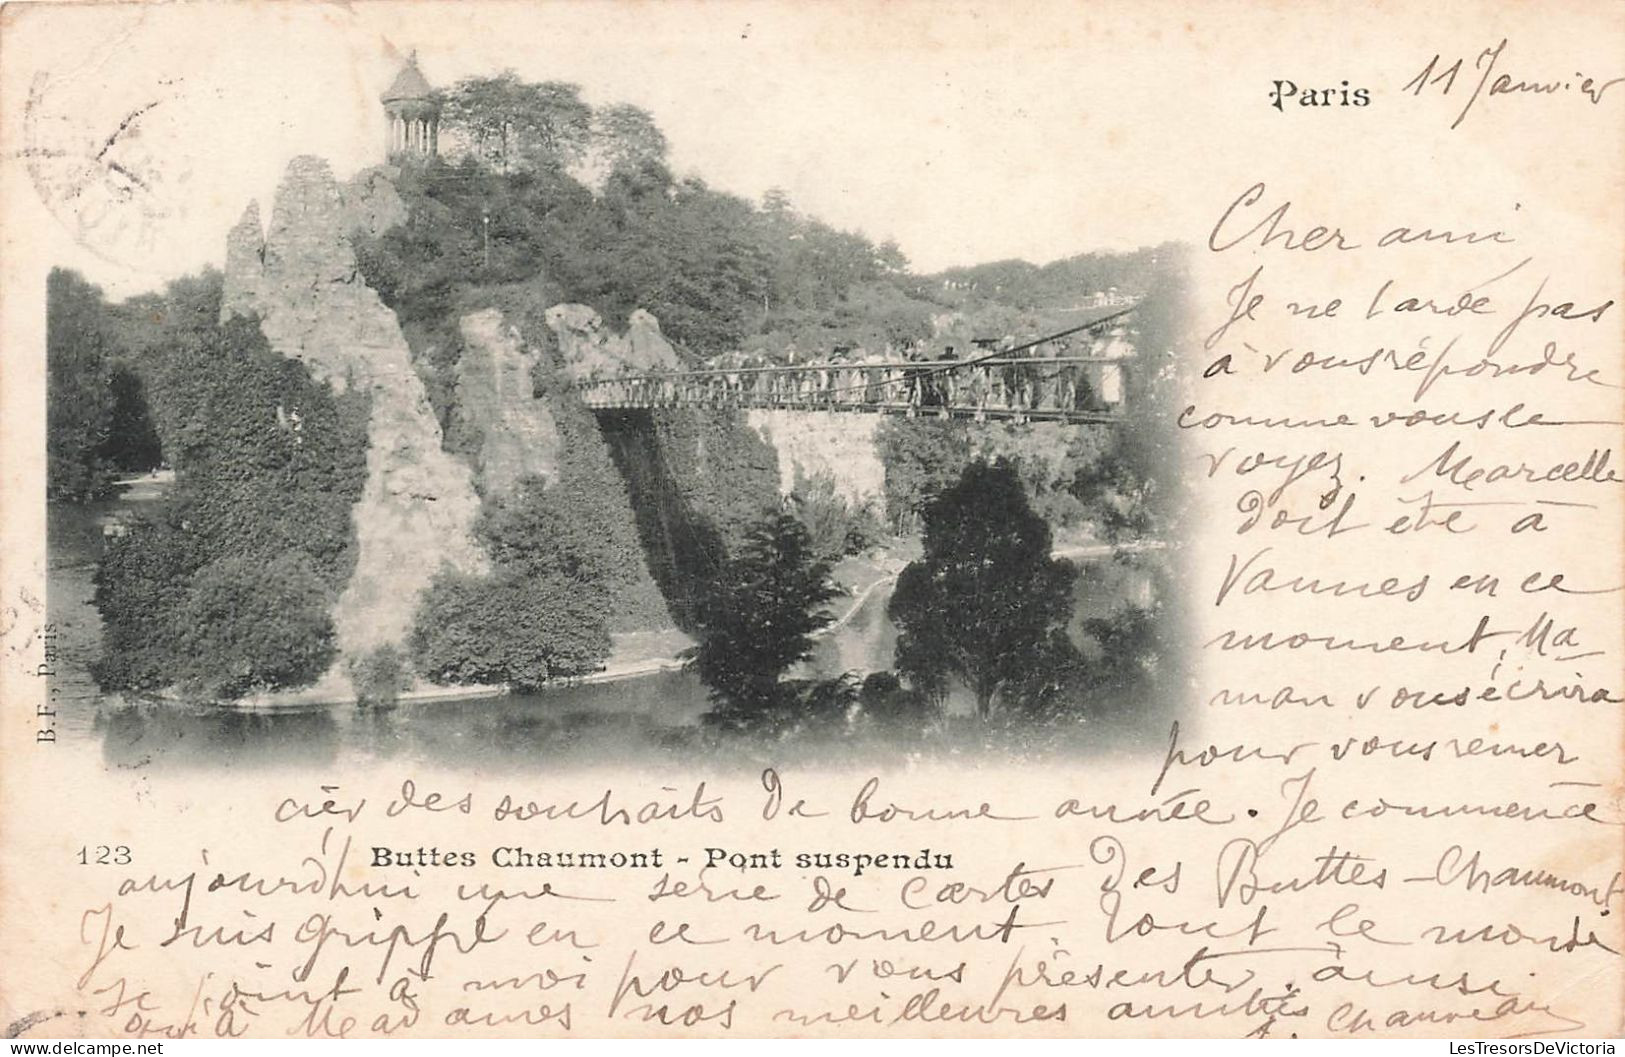 Paris 11 Janvier
Cher ami
Je ne tarde pas
à vous répondre
comme vous le
voyez. Marcelle
doit être à
Vannes en ce
moment, Ma
man vous écrira
pour vous remer
cier des souhaits de bonne année. Je commence
123 Buttes Chaumont - Pont suspendu
aujourd'hui une serie de cartes des Buttes-Chaumont
Je suis grippé en ce moment. Tout le monde
se joint à moi pour vous présenter, ainsi
qu'à Mesdames nos meilleures amitiés
A. Chauveau
B.F., Paris
LesTresorsDeVictoria